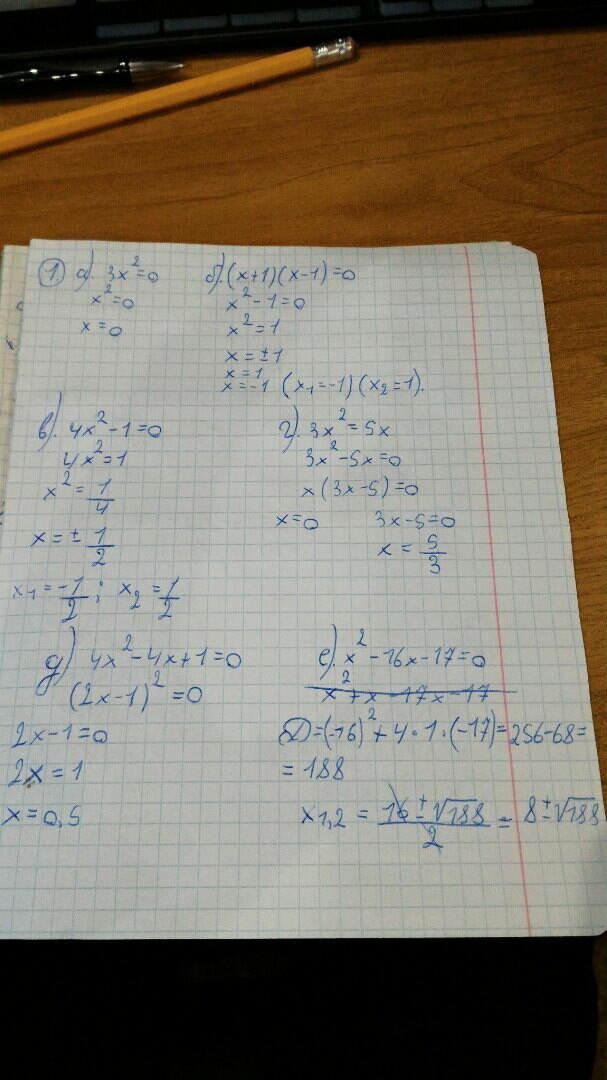 1. а). 3x²=0
x²=0
x=0
б). (x+1)(x-1)=0
x²-1=0
x²=1
x=±1
x=1
x=-1 (x₁=-1)(x₂=1).
в). 4x²-1=0
4x²=1
x²=1/4
x=±1/2
x₁=-1/2; x₂=1/2
г). 3x²=5x
3x²-5x=0
x(3x-5)=0
x=0 3x-5=0
x=5/3
д) 4x²-4x+1=0
(2x-1)²=0
2x-1=0
2x=1
x=0,5
е). x²-16x-17=0
x²+x-17x-17
D=(-16)²+4·1·(-17)=256-68=
=188
x₁,₂ = (16±√188)/2 = 8±√188